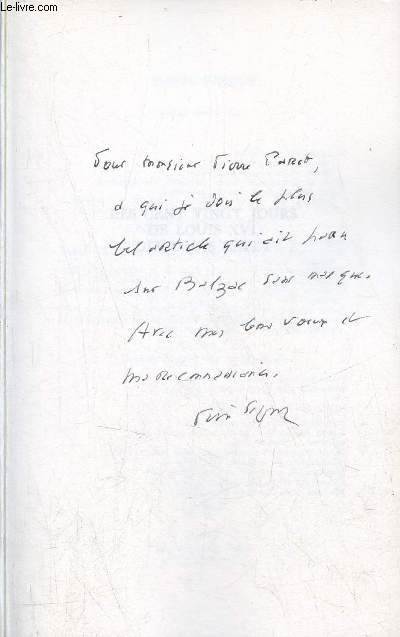 Le-livre.com
Pour Monsieur Pierre
à qui je dois le plus
bel article qui ait paru
sur Balzac sans masque.
Avec mes bons voeux et
ma reconnaissance.
LES CENT VINGT JOURS
DE LOUIS XVI